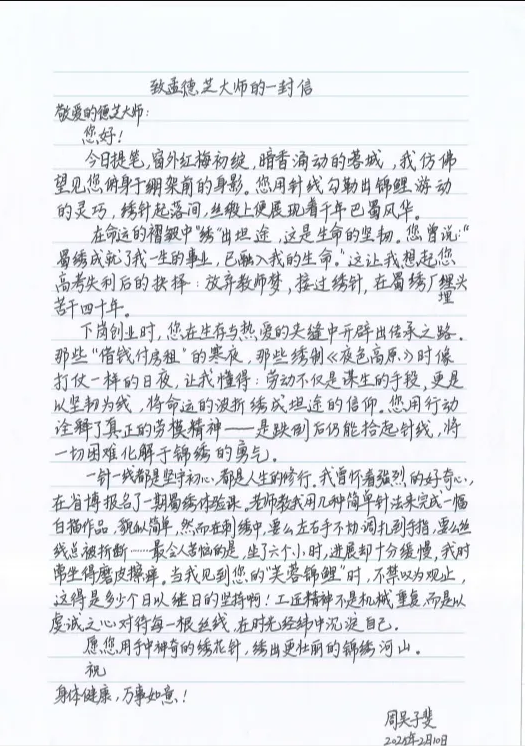 致孟德芝大师的一封信
敬爱的德芝大师：
您好！
今日提笔，窗外红梅初绽，暗香涌动的蓉城，我仿佛
望见您俯身于绷架前的身影。您用针线勾勒出锦鲤游动
的灵巧，绣针起落间，丝缎上便展现着千年巴蜀风华。
在命运的褶皱中“绣”出坦途，这是生命的坚韧。您曾说：“
蜀绣成就了我一生的事业，已融入我的生命。”这让我想起您
高考失利后的抉择：放弃教师梦，接过绣针，在蜀绣厂埋头
苦干四十年。
下岗创业时，您在生存与热爱的夹缝中开辟出传承之路。
那些“借钱付房租”的寒夜，那些绣制《夜色高原》时像
打仗一样的日夜，让我懂得：劳动不仅是谋生的手段，更是
以坚韧为线，将命运的波折绣成坦途的信仰。您用行动
诠释了真正的劳模精神——是跌倒后仍能拾起针线，将
一切困难化解于锦绣的勇气。
一针一线都是坚守初心，都是人生的修行。我曾怀着强烈的好奇心，
在省博报名了一期蜀绣体验课。老师教我用几种简单针法来完成一幅
白描作品，貌似简单，然而在刺绣中，要么左右手不协调扎到手指，要么丝
线总被折断……最令人苦恼的是，坐了六个小时，进展却十分缓慢，我时
常坐得磨皮擦痒。当我见到您的“芙蓉锦鲤”时，不禁叹为观止，
这得是多少个日以继日的坚持啊！工匠精神不是机械重复，而是以
虔诚之心对待每一根丝线，在时光经纬中沉淀自己。
愿您用手中神奇的绣花针，绣出更壮丽的锦绣河山。
祝
身体健康，万事如意！
周吴子斐
2025年2月10日